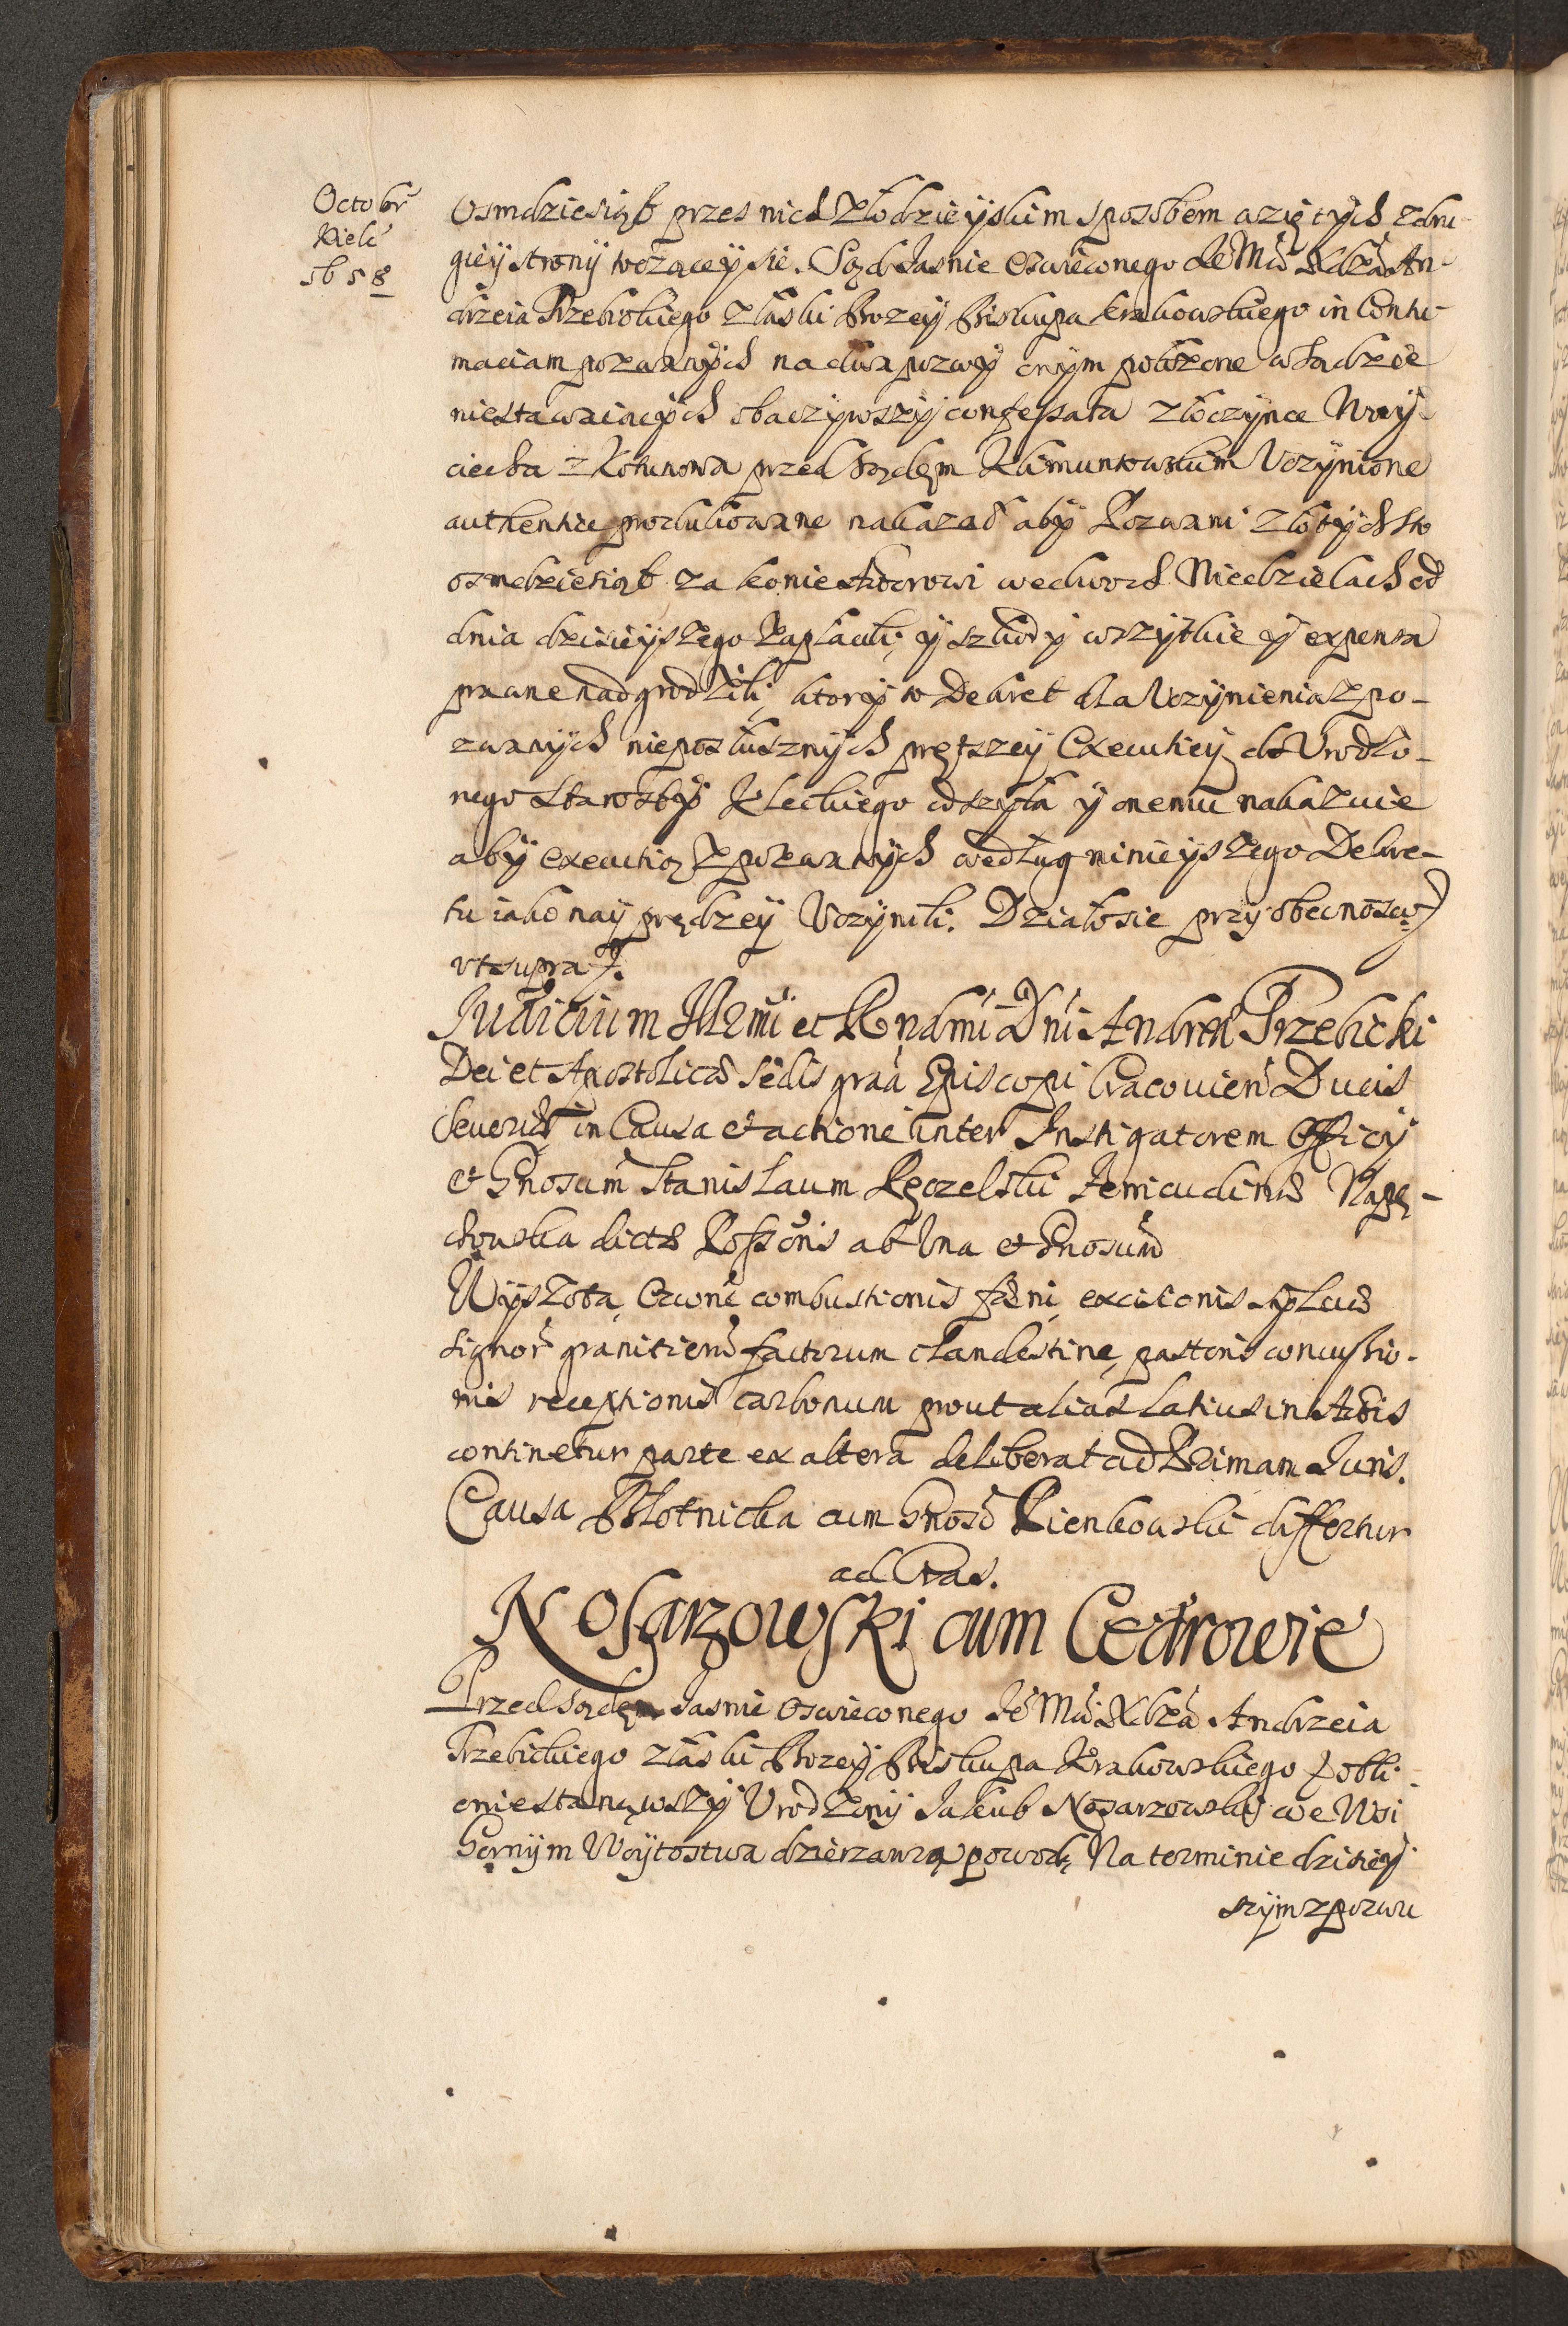 Octobr
Kielc
1658
Osmdziesiąt przes nich Złodzieyskim sposobem aziętych zdru-
giey strony toczącey sie. Sąd Jasnie Oswieconego Je Mci Xdza An-
drzeia Trzebickiego z łaski Bozey Biskupa krakowskiego in Contu-
maciam pozwanych na dwa pozwy onym położone w Sądzie
niestawaiących obaczywszy confessata złoczynce Woy-
ciecha z Kotunowa przed Sądem Klimuntowskim Vczynione
authentice produkowane nakazał aby Pozwani złotych sto
osmdziesiąt za konie Aktorowi we dwoch Niedzielach od
dnia dzisieyszego Zapłacili, y szkody wszytkie y expensa
prawne nadgrodzili, ktory to Dekret dla Vczynienia z po-
zwanych nieposłusznych prętszey Executiey do Vrodzo-
nego Starosty Kieleckiego odszyła y onemu nakazuie
aby executią z pozwanych według ninieyszego Dekre-
tu iako nayprędzey Vczynili. Działo sie przy obecnosci
vt supra.
Judicium Illmi et Rndmi Dni Andreæ Trzebicki
Dei et Apostolicæ Sedis graa Episcopi Cracouien Ducis
Seueriæ in Causa et actione inter Instigatorem Officij
et Gnosum Stanislaum Ręczelski ferricudinæ Napę-
kowska dictæ Possoris ab Vna et Gnosum
Wyszota, Crione combustionis fæni, excisionis syluæ
signor granitien factorum clandestine, pastoris concussio-
nis receptionis carbonum prout alias latius in Actis
continetur parte ex altera deliberat ad Primam Juris.
Causa Błotnicka cum Gnoso Pienkowski differtur
ad Cras.
Nosarzowski cum Cedrowie
Przed Sądem Jasnie Oswieconego Je Mci Xdza Andrzeia
Trzebickiego z łaski Bozey Biskupa Krakowskiego Obli-
cnie stanąwszy Vrodzony Jakub Nosarzowski we Wsi
Gornym Woytostwa dzierzawca powod, Na terminie dzisiey
szym z pozwu